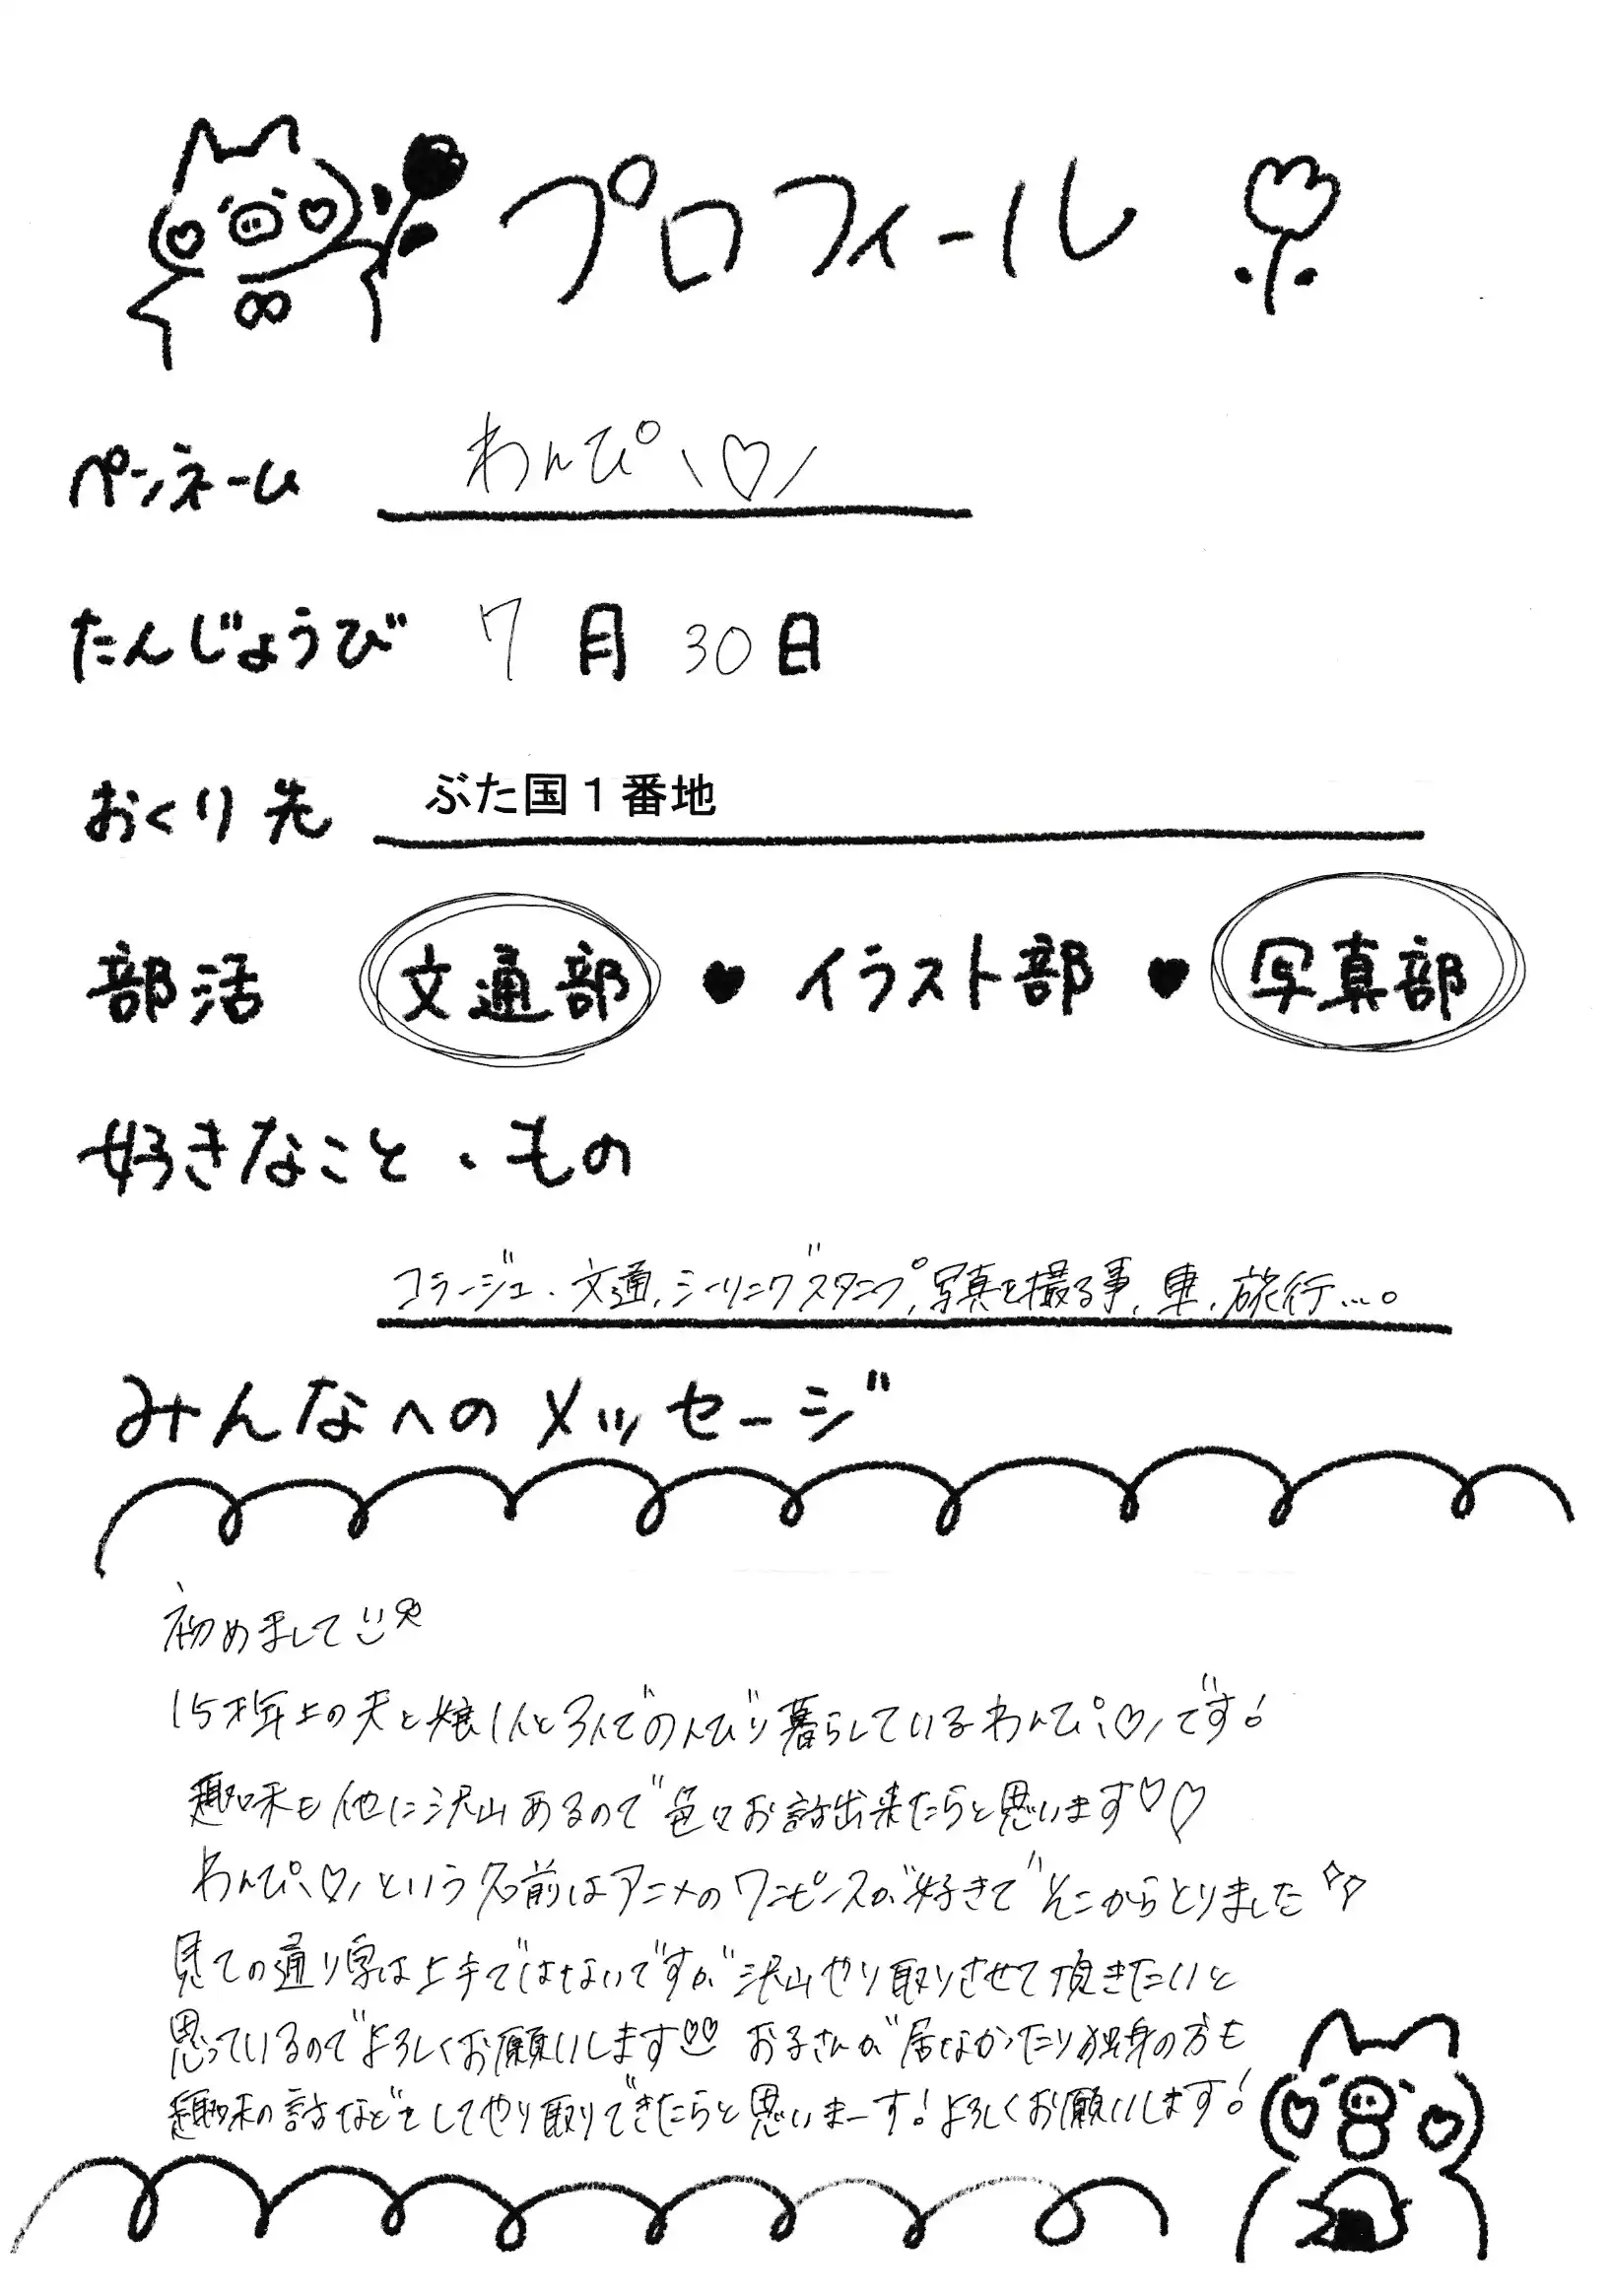 プロフィール
ペンネーム わんぴ\♡/
たんじょうび 7月30日
おくり先 ぶた国1番地
部活 文通部 ♥ イラスト部 ♥ 写真部
好きなこと・もの
コラージュ、文通、シーリングスタンプ、写真を撮る事、車、旅行...。
みんなへのメッセージ
初めまして
15才年上の夫と娘1人と3人でのんびり暮らしているわんぴ\♡/です!
趣味も他に沢山あるので色々お話出来たらと思います♡♡
わんぴ\♡/という名前はアニメのワンピースが好きでそこからとりました
見ての通り字は上手ではないですが沢山やり取りさせて頂きたいと
思っているのでよろしくお願いします お子さんが居なかったり独身の方も
趣味の話などをしてやり取りできたらと思いまーす!よろしくお願いします!